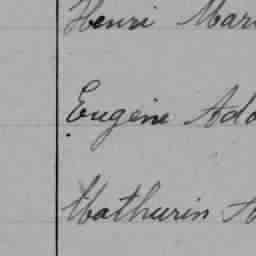 Henri Mar
Eugène Ado
Mathurin